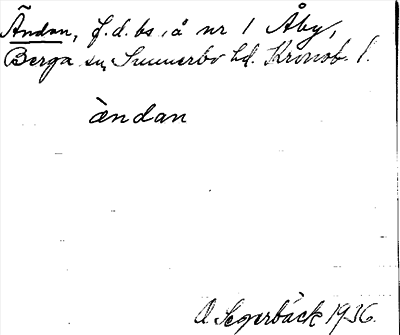 Ändan, f.d. bs. å nr 1 Åby,
Berga sn, Sunnerbo hd. Kronob. l.
àndan
O. Segerbäck 1936.